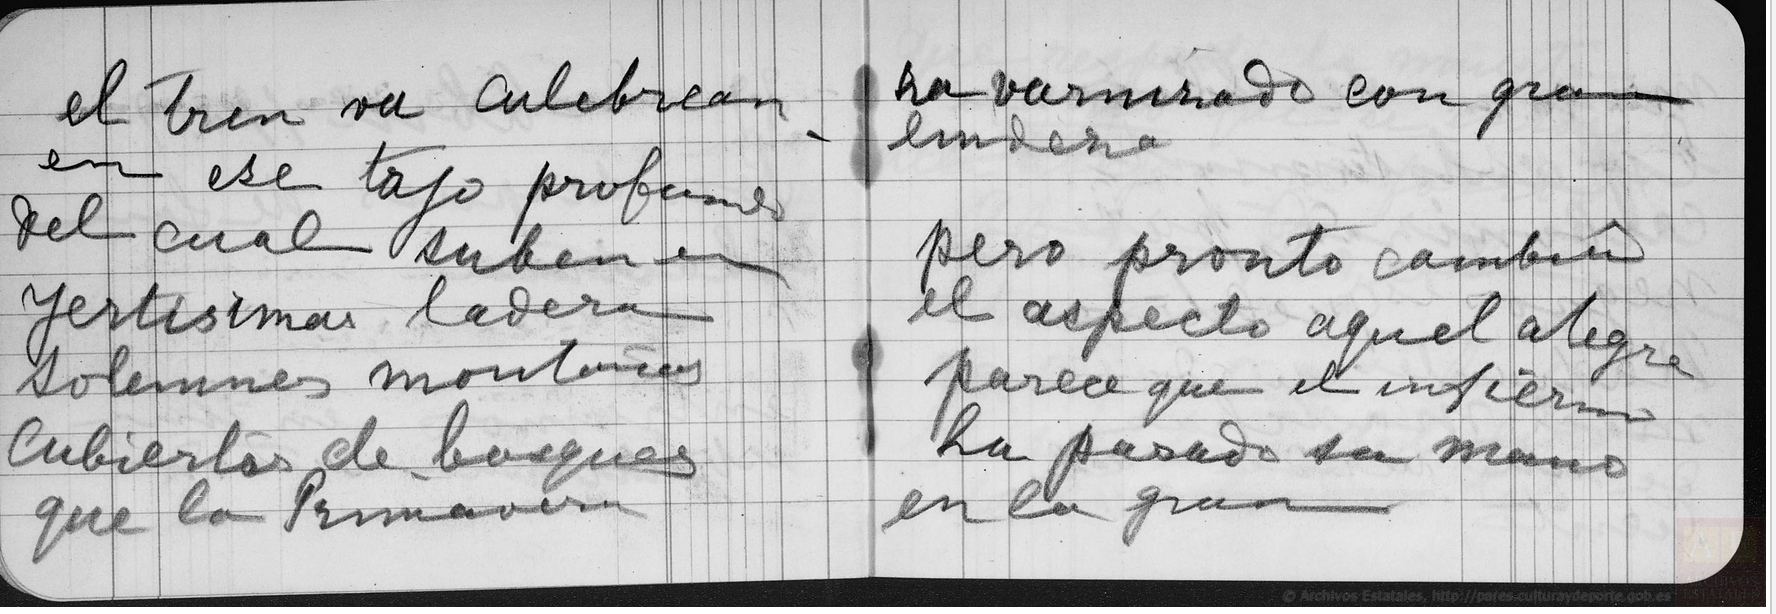 el tren va culebrean
en ese tajo profundo
del cual suben en
yertisimas ladera
solemnes montañas
Cubiertas de bosques
que la Primavera
ha varnizado con gran
lindeza
pero pronto cambia
el aspecto aquel alegre
parece que el infierno
ha pasado su mano
en la gran
© Archivos Estatales, http://pares.culturaydeporte.gob.es